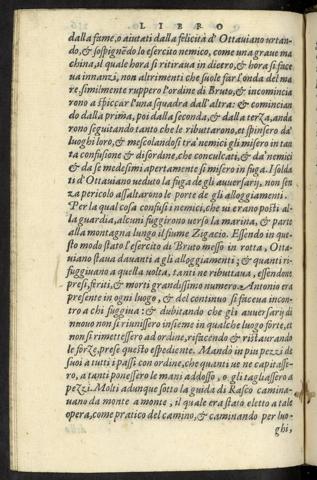 LIBRO
dalla fame, o aiutati dalla felicità d'Ottaviano urtan-
do, & sospignēdo lo esercito nemico, come una grave ma
china, il quale hora si ritirava in dietro, & hora si face
va innanzi, non altrimenti che suole far l'onda del ma
re, similmente ruppero l'ordine di Bruto, & incomincia
rono a spiccar l'una squadra dall'altra: & comincian
do dalla prima, poi dalla seconda, & dalla terza, anda
rono seguitando tanto che le ributtarono, et spinsero da'
luoghi loro, & mescolandosi tra' nemici gli misero in tan
ta confusione & disordine, che conculcati, & da' nemici
& da se medesimi apertamente si misero in fuga. I solda
ti d'Ottaviano veduto la fuga degli avversarij, non sen
za pericolo assaltarono le porte de gli alloggiamenti.
Per la qual cosa confusi i nemici, che vi erano posti al-
la guardia, alcuni fuggirono verso la marina, & parte
alla montagna lungo il fiume Zigacio. Essendo in que
sto modo stato l'esercito di Bruto messo in rotta, Otta
viano stava davanti a gli alloggiamenti; & quanti ri-
fuggivano a quella volta, tanti ne ributtava, essendone
presi, feriti, & morti grandissimo numero. Antonio era
presente in ogni luogo, & del continuo si faceva incon-
tro a chi fuggiva: & dubitando che gli avversarij di
nuovo non si riunissero insieme in qualche luogo forte, et
non si rimettessero ad ordine, rifacendo & ristaurando
le forze, prese questo espediente. Mandò in piu pezzi de
suoi a tutti i passi con ordine, che quanti ve ne capitasse-
ro, a tanti ponessero le mani addosso, o gli tagliassero a
pezzi. Molti adunque sotto la guida di Rasco camina-
vano da monte a monte, il quale era stato eletto a tale
opera, come pratico del camino, & caminando per luo-
ghi,